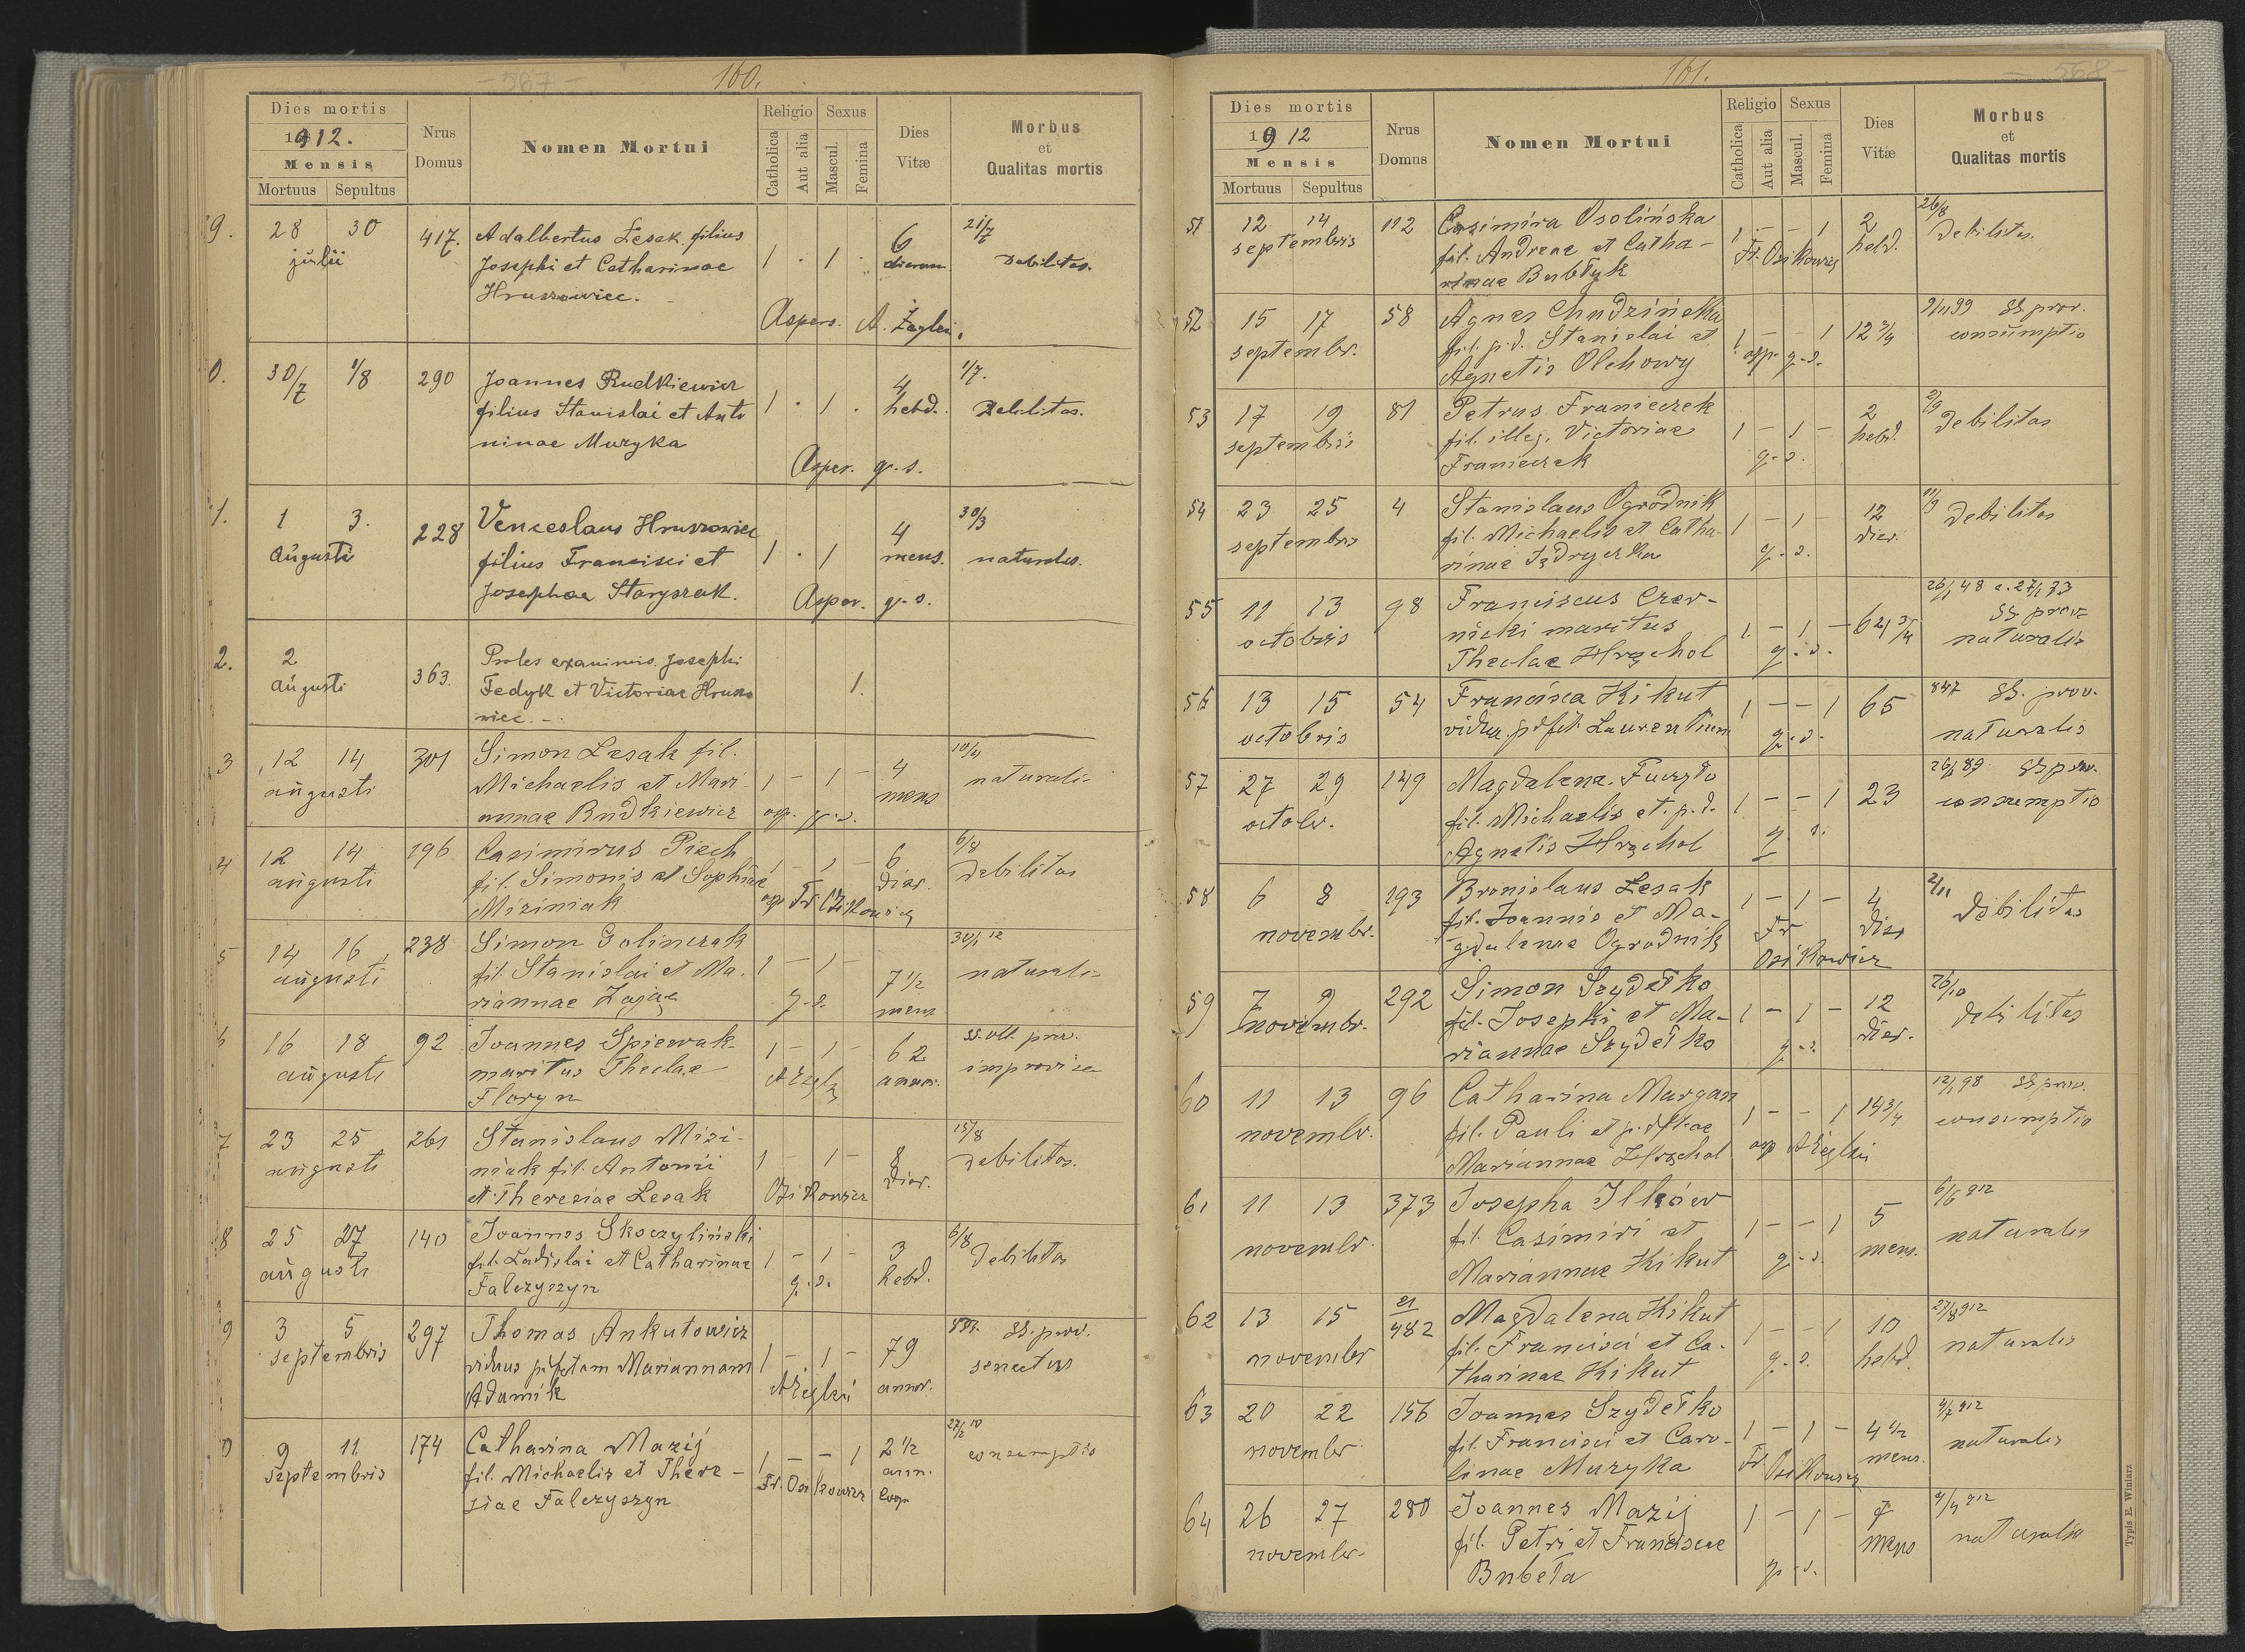 - 567 -
160.
Dies mortis
1912.
Mensis
Mortuus Sepultus
Nrus Domus
Nomen Mortui
Religio
Catholica
Aut alia
Sexus
Mascul.
Femina
Dies Vitæ
Morbus
et
Qualitas mortis
9. 28 30 417. Adalbertus Lesak filius 6 21/7
julii Josephi et Catharinae 1 . 1 . dierum Debilitas.
Hruszowiec.
Aspers. A. Żeglei.
0. 30/7 1/8 290 Joannes Rudkiewicz 4 1/7.
filius Stanislai et Anto 1 . 1 . hebd. Debilitas.
ninae Muzyka
Asper. q.s.
1. 1 3. 228 Venceslaus Hruszowiec 4 30/3
augusti filius Francisci et 1 . 1 mens. naturales.
Josephae Staryszak. Asper. q.s.
2. 2 363. Proles exanimis Josephi
augusti Fedyk et Victoriae Hruszo 1.
wiec. -.
3 12 14 301 Simon Lesak fil. 10/4
augusti Michaelis et Mari- 1 - 1 - 4 naturalis
annae Rudkiewicz asp. q.s. mens
4 12 14 196 Casimirus Piech 1 - 1 - 6 6/8
augusti fil. Simonis et Sophiae dier. debilitas
Miziniak asp Fr Osikowicz
5 14 16 238 Simon Golinczak 30/1 12
augusti fil. Stanislai et Ma. 1 - 1 - 7 1/2 naturalis
riannae Zając q.s. mens
6 16 18 92 Joannes Spiewak 1 - 1 - 62 ss. oll. prov.
augusti maritus Theclae annor. improvisa
Floryn
7 23 25 261 Stanislaus Mizi- 15/8
augusti niak fil. Antonii 1 - 1 - 8 debilitas.
et Theresiae Lesak Osikowicz dier.
8 25 27 140 Joannes Skoczyliński 6/8
augusti fil. Ladislai et Catharinae 1 - 1 - 3 debilitas
Falczyszyn q.s. hebd.
9 3 5 297 Thomas Ankutowicz SS. prov.
septembris viduus p. dfctam Mariannam 1 - 1 - 79 senectus
Adamik annor.
0 9 11 174 Catharina Mazij 27/2 10
Septembris fil. Michaelis et There- 1 - - 1 2 1/2 consumptio
siae Falczyszyn Fr. Osikowicz ann.
161.
- 568 -
Dies mortis
1912
Mensis
Mortuus Sepultus
Nrus Domus
Nomen Mortui
Religio
Catholica
Aut alia
Sexus
Mascul.
Femina
Dies Vitæ
Morbus
et
Qualitas mortis
51 12 14 112 Casimira Osolińska 26/8
septembris fil. Andreae et Catha- 1 - - 1 2 debilitas
rinae Bubłyk Fr. Osikowicz hebd.
52 15 17 58 Agnes Chudzińska 9/11 99 SS prov.
septembr. fil. p.d. Stanislai et 1 - - 1 12 3/4 consumptio
Agnetis Olchowy asp. q.s.
53 17 19 81 Petrus Franieczek 2/9
septembris fil. illeg. Victoriae 1 - 1 - 2 debilitas
Franieczek q.s. hebd.
54 23 25 4 Stanislaus Ogrodnik 11/9
septembris fil. Michaelis et Catha- 1 - 1 - 12 debilitas
rinae Jędryczka q.s. dier.
55 11 13 98 Franciscus Czer- 26/1 48 c. 27/1 73
octobris nicki maritus 1 - 1 - 64 3/4 SS prov.
Theclae Hrąchol q.s. naturalis
56 13 15 54 Francisca Kikut 1 - - 1 65 847 SS. prov.
octobris vidua p. dfct. Laurentium q.s. naturalis
57 27 29 149 Magdalena Fuczyło 26/1 89 SS prov.
octobr. fil. Michaelis et p.d. 1 - - 1 23 consumptio
Agnetis Hrąchol q s.
58 6 8 193 Bronislaus Lesak 1 - 1 - 4 2/11
novembr. fil. Joannis et Ma- Fr dier debilitas
gdalenae Ogrodnik Osikowicz
59 7 9 292 Simon Szydełko 26/10
novembr. fil. Josephi et Ma- 1 - 1 - 12 debilitas
riannae Szydełko q.s. dier.
60 11 13 96 Catharina Margan 12/1 98 SS prov.
novembr. fil. Pauli et p. dftae 1 - - 1 14 3/4 consumptio
Mariannae Hrąchol asp A Żeglei
61 11 13 373 Josepha Ilków 6/6 912
novembr. fil. Casimiri et 1 - - 1 5 naturalis
Mariannae Kikut q.s. mens.
62 13 15 21/482 Magdalena Kikut 27/8 912
novembr fil. Francisci et Ca- 1 - - 1 10 naturalis
tharinae Kikut q.s. hebd.
63 20 22 156 Joannes Szydełko 4/7 912
novembr fil. Francisci et Caro- 1 - 1 - 4 1/2 naturalis
linae Muzyka Fr. Osikowicz mens.
64 26 27 280 Joannes Mazij 4/4 912
novembr. fil. Petri et Franciscae 1 - 1 - mens naturalis
Bubeła q.s.
Typis E. Winiarz